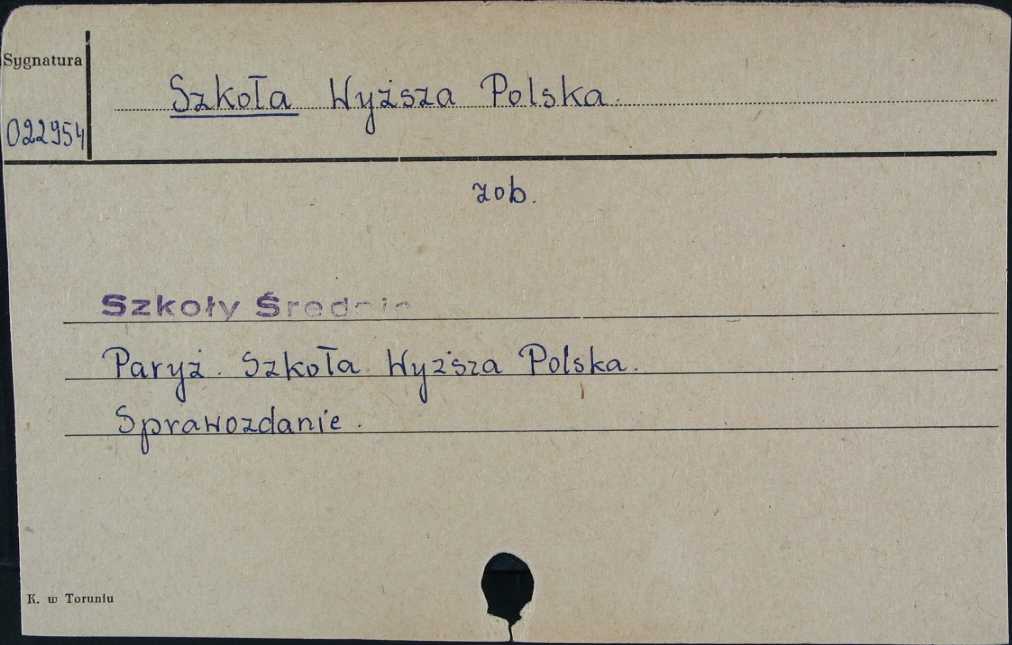 Sygnatura
022954
Szkoła Wyższa Polska.
zob.
Szkoły Średnie
Paryż. Szkoła Wyższa Polska.
Sprawozdanie.
K. w Toruniu